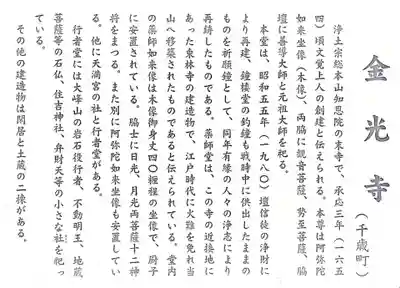 金光寺
(千歳町)
浄土宗総本山知恩院の末寺で、承応三年(一六五
四)頃文覚上人の創建と伝えられる。本尊は阿弥陀
如来坐像(木像)、両脇に観音菩薩、勢至菩薩、脇
壇に善導大師と元祖大師を祀る。
本堂は、昭和五五年(一九八〇)壇信徒の浄財に
より再建、鐘楼堂の釣鐘も戦時中に供出したままの
ものを祈願鐘として、同年有縁の人々の浄志により
再鋳したものである。薬師堂は、この寺の近接地に
あった東林寺の建造物で、江戸時代に火難を免れ当
山へ移築されたものであると伝えられている。堂内
の薬師如来像は木像御身丈四〇糎程の坐像で、厨子
に安置されている。脇士に日光、月光両菩薩十二神
将をまつる。また別に阿弥陀如来坐像も安置してい
る。他に天満宮の社と行者堂がある。
行者堂には大峰山の岩石役行者、不動明王、地蔵
菩薩等の石仏、住吉神社、弁財天等の小さな社を祀っ
ている。
その他の建造物は閑居と土蔵の二棟がある。